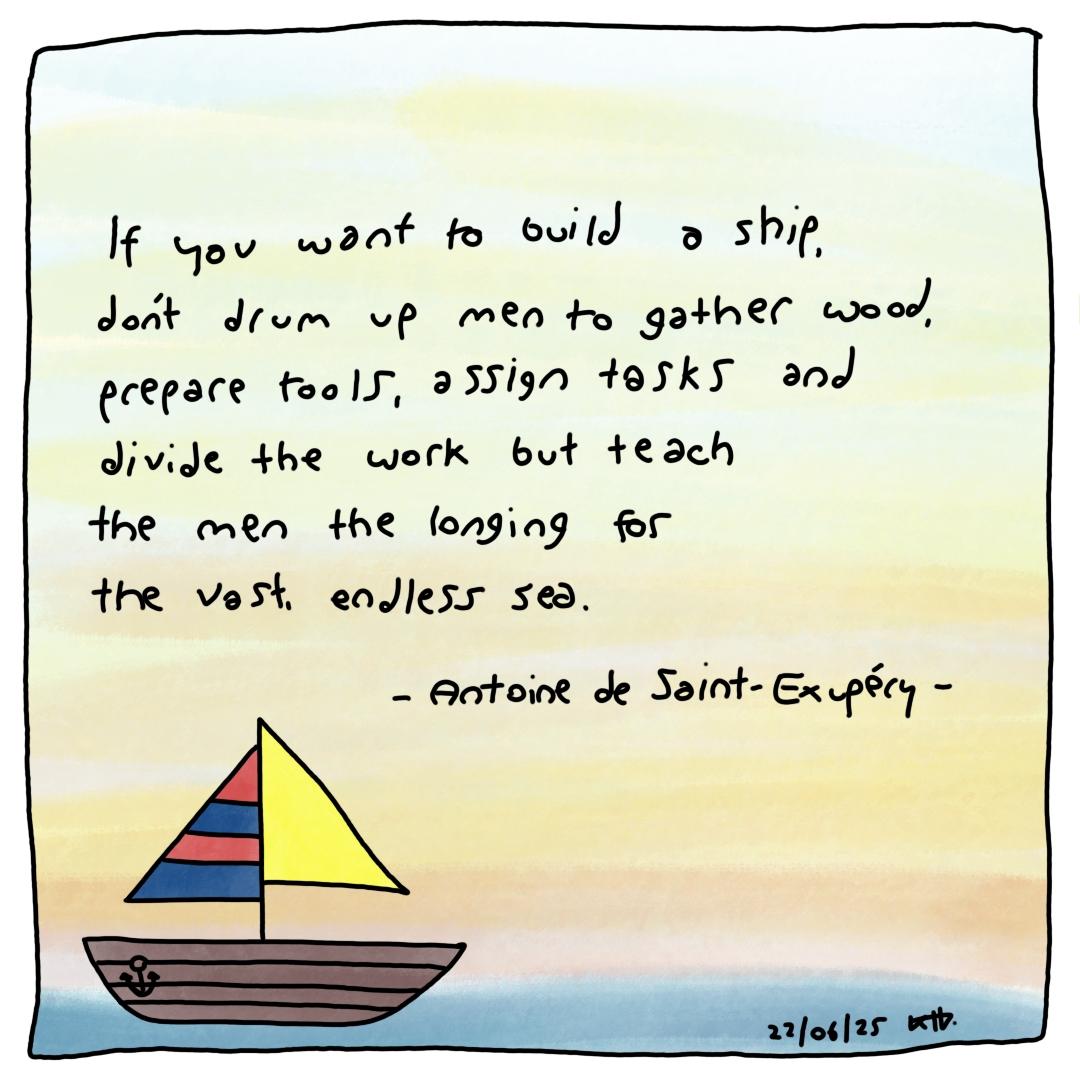 If you want to build a ship,
don't drum up men to gather wood,
prepare tools, assign tasks and
divide the work but teach
the men the longing for
the vast, endless sea.
- Antoine de Saint-Exupéry -
22/06/25